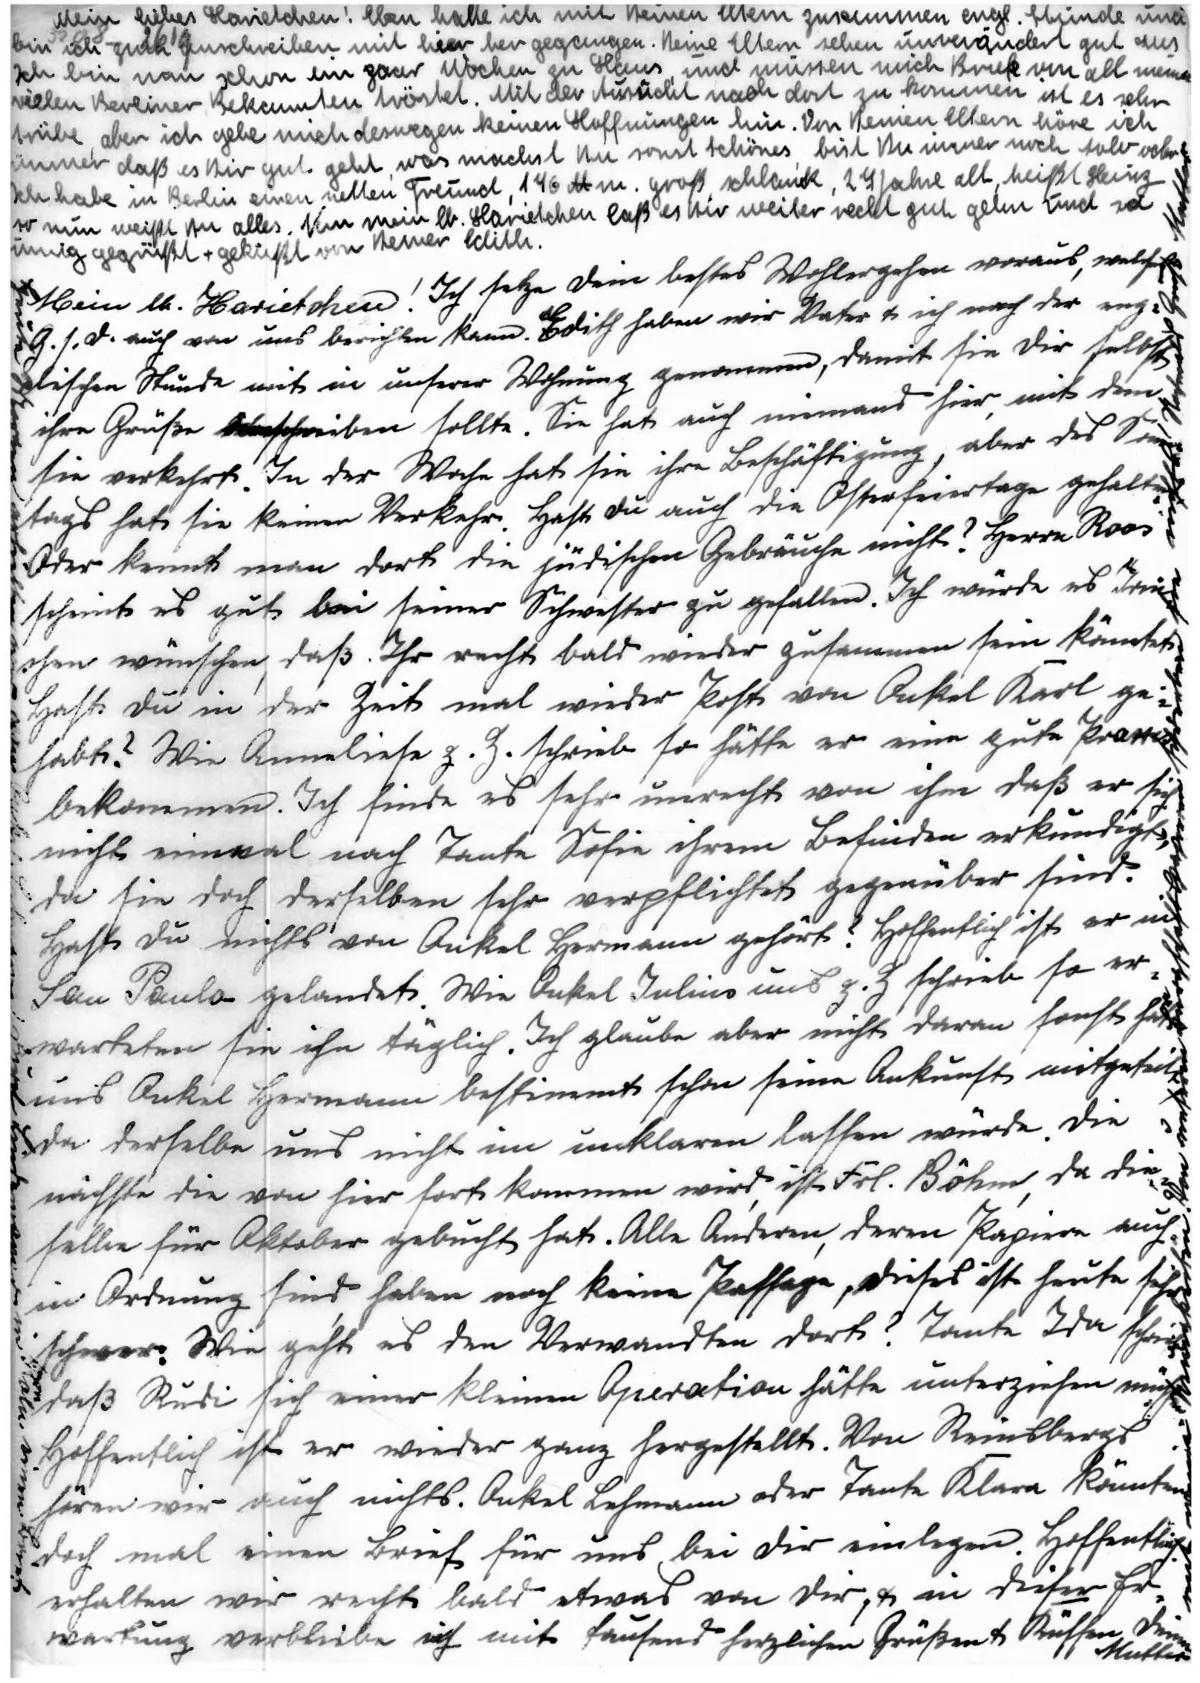 Mein liebes Harietchen! Eben hatte ich mit Deinen Eltern zusammen engl. Stunde und
bin ich zum schreiben mit hier her gegangen. Deine Eltern sehen unverändert gut aus
Ich bin nun schon ein paar Wochen zu Haus und müssen mich Briefe von all meinen
vielen Berliner Bekannten trösten. Mit der Aussicht nach dort zu kommen ist es sehr
trübe, aber ich gebe mich deswegen keinen Hoffnungen hin. Von Deinen Eltern höre ich
immer daß es Dir gut geht, was machst Du sonst schönes, bist Du immer noch
Ich habe in Berlin einen netten Freund, 176 m. groß, schlank, 24 Jahre alt, heißt Heinz
so nun weißt Du alles. Nun mein lb. Harietchen laß es Dir weiter recht gut gehn und sei
innig gegrüßt + geküßt von Deiner Edith.
Mein lb. Harietchen! Ich setze Dein bestes Wohlergehen voraus, welches
G. s. D. auch von uns berichten kann. Edith haben wir Vater & ich nach der eng-
lischen Stunde mit in unserer Wohnung genommen, damit sie Dir selbst
ihre Grüße schreiben sollte. Sie hat auch niemand hier, mit dem
sie verkehrt. In der Woche hat sie ihre Beschäftigung, aber des Sonn-
tags hat sie keinen Verkehr. Hast Du auch die Osterfeiertage gehalten
Oder kennt man dort die jüdischen Gebräuche nicht? Herrn Roos
scheint es gut bei seiner Schwester zu gefallen. Ich würde es Trin-
chen wünschen, daß Ihr recht bald wieder zusammen sein könntet.
Hast Du in der Zeit mal wieder Post von Onkel Karl ge-
habt? Wie Anneliese z. Z. schrieb so hätte er eine gute Praxis
bekommen. Ich finde es sehr unrecht von ihm daß er sich
nicht einmal nach Tante Sofie ihrem Befinden erkundigt,
da sie doch derselben sehr verpflichtet gegenüber sind.
Hast Du nichts von Onkel Hermann gehört? Hoffentlich ist er in
San Paulo gelandet. Wie Onkel Julius uns z. Z schrieb so er-
warteten sie ihn täglich. Ich glaube aber nicht daran sonst hätte
uns Onkel Hermann bestimmt schon seine Ankunft mitgeteilt
da derselbe uns nicht im unklaren lassen würde. Die
nächste die von hier fort kommen wird, ist Frl. Böhm, da die-
selbe für Oktober gebucht hat. Alle Anderen, deren Papiere auch
in Ordnung sind, haben noch keine Passage, dieses ist heute sehr
schwer. Wie geht es den Verwandten dort? Tante Ida schrieb
daß Rudi sich einer kleinen Operation hätte unterziehen müssen
Hoffentlich ist er wieder ganz hergestellt. Von Reinsbergs
hören wir auch nichts. Onkel Lehmann oder Tante Klara könnten
doch mal einen Brief für uns bei Dir einlegen. Hoffentlich
erhalten wir recht bald etwas von Dir, & in dieser Er-
wartung verbleibe ich mit tausend herzlichen Grüßen & Küssen Deine
Mutter